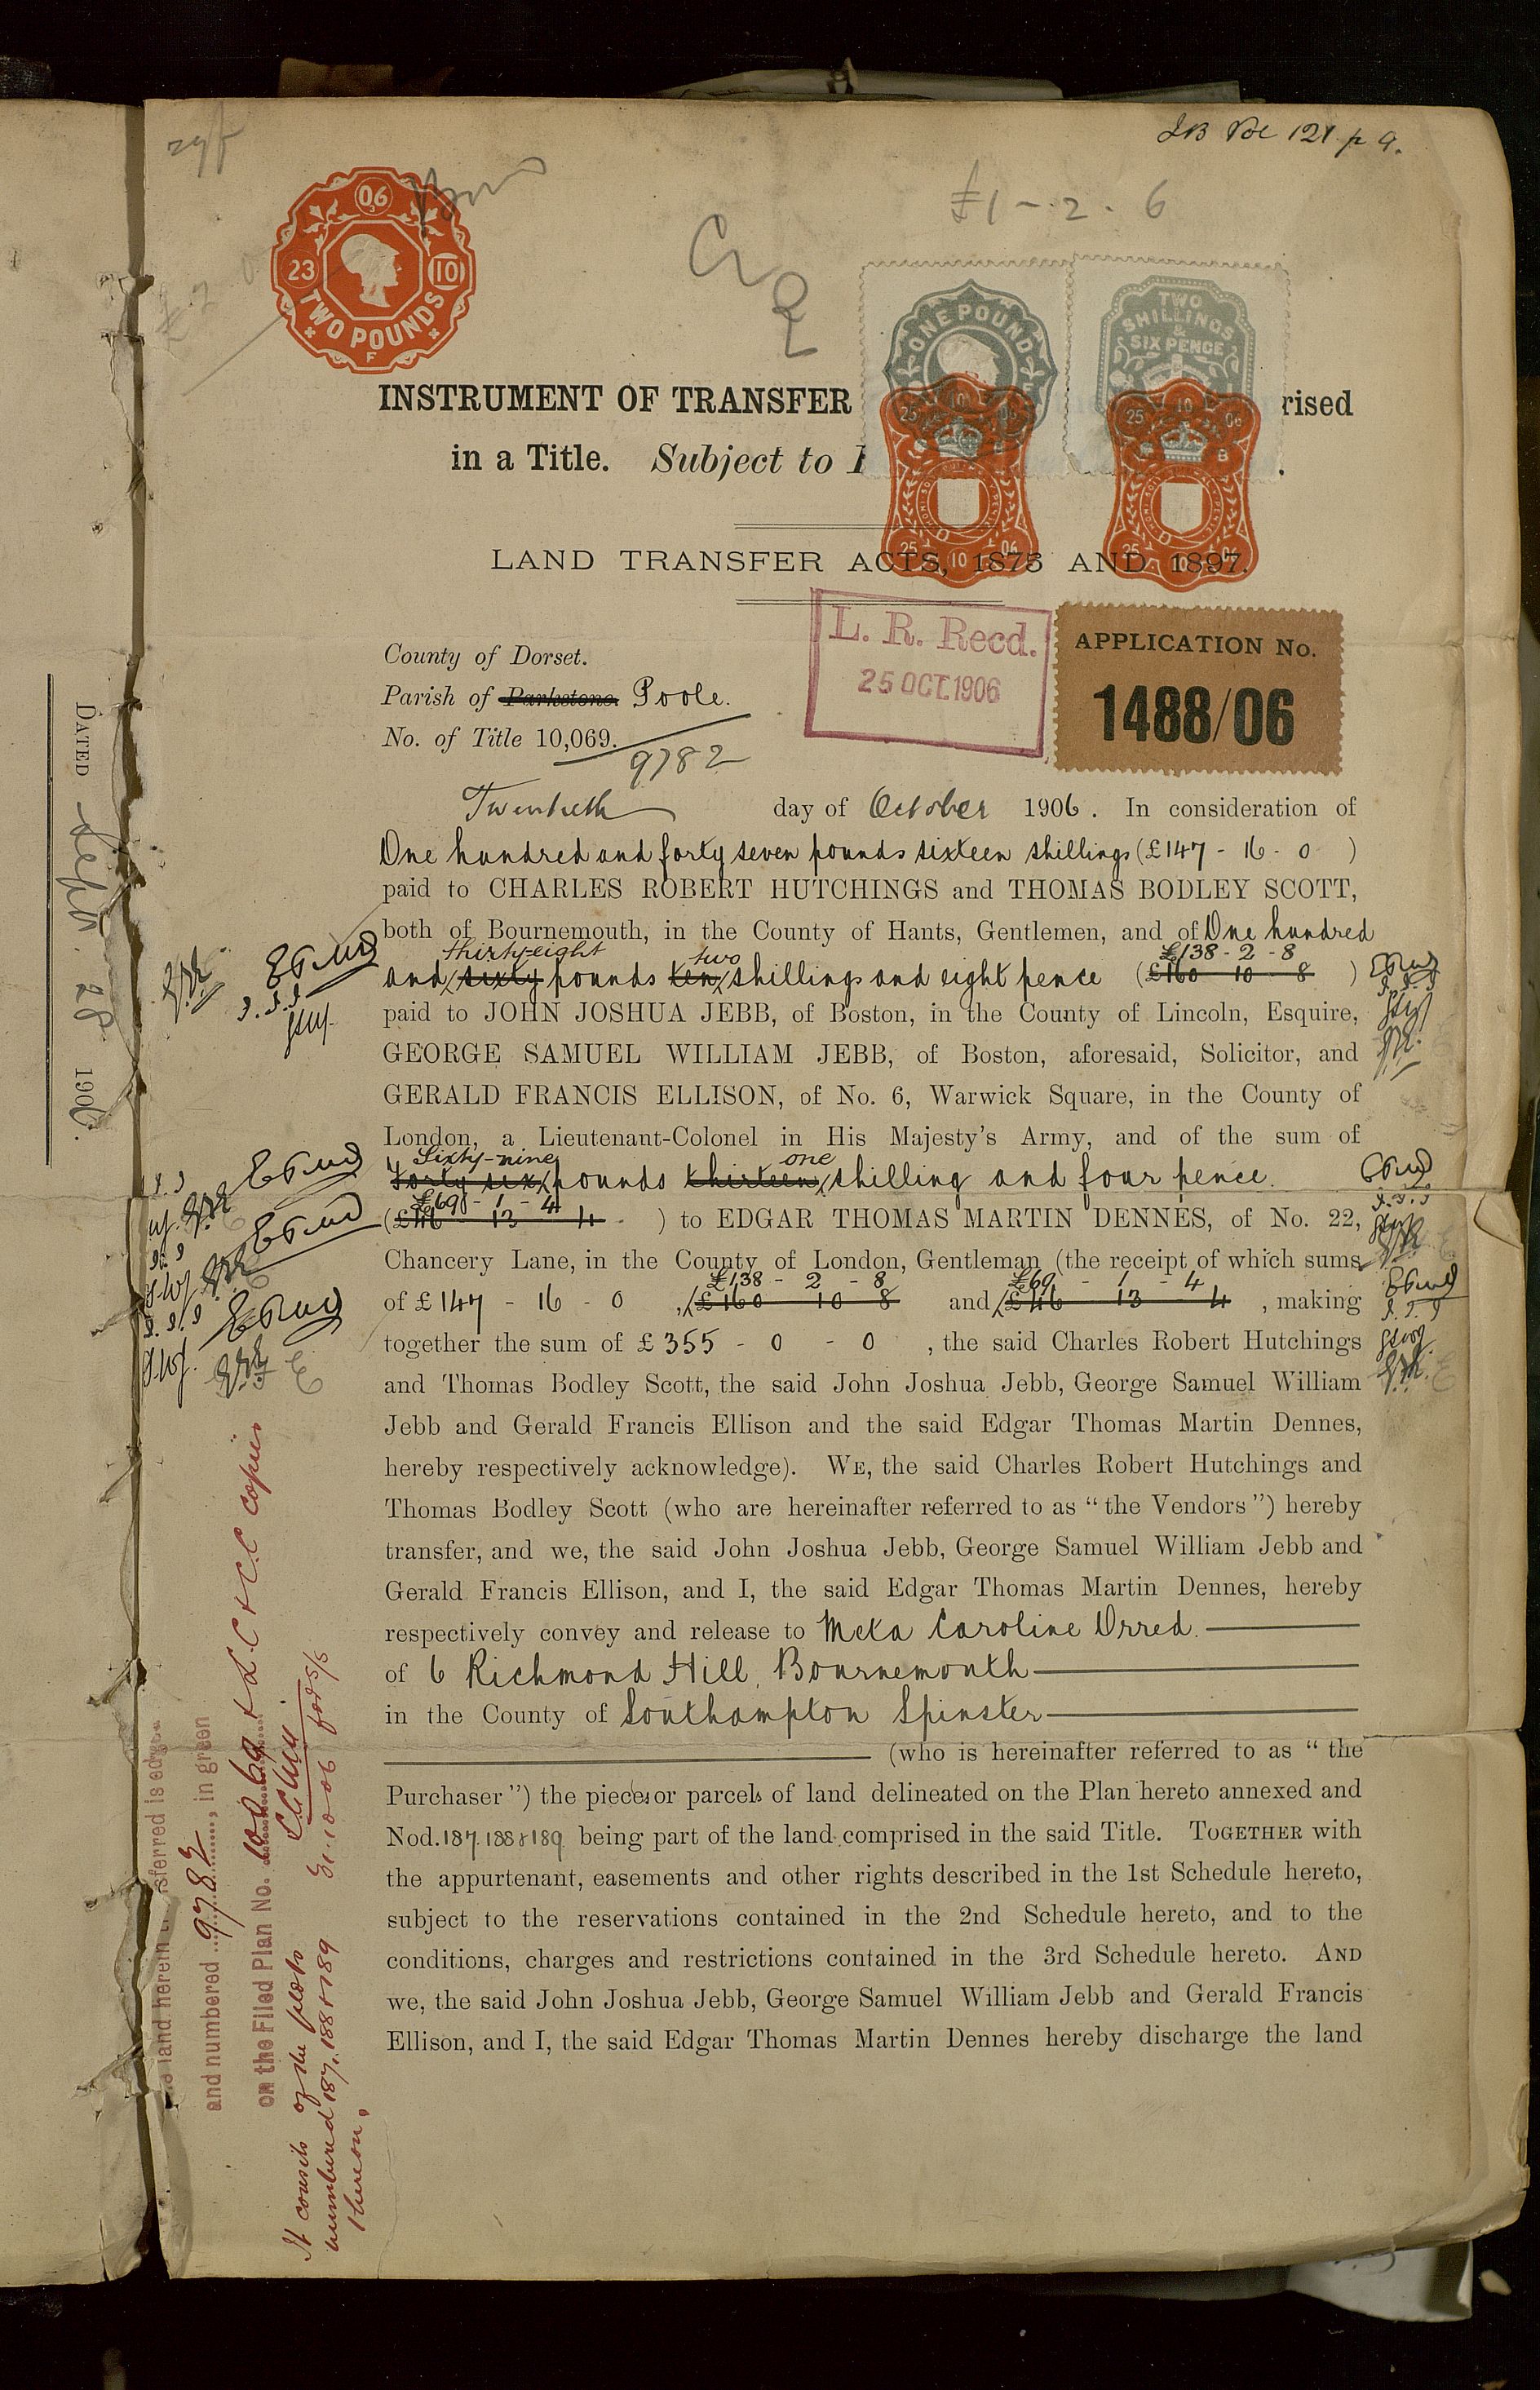 LB Vol 121 p 9.
£1 - 2 - 6
06
23
10
TWO POUNDS
F
ONE POUND
TWO
SHILLINGS
&
SIX PENCE
25 10 06
25 10 06
B
INSTRUMENT OF TRANSFER rised
in a Title. Subject to
25 10 06
25 10 06
LAND TRANSFER ACTS, 1875 AND 1897.
L. R. Recd.
25 OCT. 1906
APPLICATION No.
1488/06
County of Dorset.
Parish of Parkstone. Poole.
No. of Title 10,069.
9782
Twentieth day of October 1906. In consideration of
One hundred and forty seven pounds sixteen shillings (£147 - 16 - 0 )
paid to CHARLES ROBERT HUTCHINGS and THOMAS BODLEY SCOTT,
both of Bournemouth, in the County of Hants, Gentlemen, and of One hundred
thirty-eight two £138 - 2 - 8
and sixty pounds ten shillings and eight pence (£160 10 8 )
paid to JOHN JOSHUA JEBB, of Boston, in the County of Lincoln, Esquire,
GEORGE SAMUEL WILLIAM JEBB, of Boston, aforesaid, Solicitor, and
GERALD FRANCIS ELLISON, of No. 6, Warwick Square, in the County of
London, a Lieutenant-Colonel in His Majesty's Army, and of the sum of
Sixty-nine one
forty six pounds thirteen shilling and four pence.
£69 - 1 - 4
(£46 13 4 ) to EDGAR THOMAS MARTIN DENNES, of No. 22,
Chancery Lane, in the County of London, Gentleman (the receipt of which sums
£138 - 2 - 8 £69 - 1 - 4
of £147 - 16 - 0 , £160 10 8 and £46 13 4 , making
together the sum of £355 - 0 - 0 , the said Charles Robert Hutchings
and Thomas Bodley Scott, the said John Joshua Jebb, George Samuel William
Jebb and Gerald Francis Ellison and the said Edgar Thomas Martin Dennes,
hereby respectively acknowledge). WE, the said Charles Robert Hutchings and
Thomas Bodley Scott (who are hereinafter referred to as "the Vendors") hereby
transfer, and we, the said John Joshua Jebb, George Samuel William Jebb and
Gerald Francis Ellison, and I, the said Edgar Thomas Martin Dennes, hereby
respectively convey and release to Meta Caroline Orred.
of 6 Richmond Hill, Bournemouth
in the County of Southampton Spinster
(who is hereinafter referred to as "the
Purchaser") the pieces or parcels of land delineated on the Plan hereto annexed and
Nod. 187. 188 & 189 being part of the land comprised in the said Title. TOGETHER with
the appurtenant, easements and other rights described in the 1st Schedule hereto,
subject to the reservations contained in the 2nd Schedule hereto, and to the
conditions, charges and restrictions contained in the 3rd Schedule hereto. AND
we, the said John Joshua Jebb, George Samuel William Jebb and Gerald Francis
Ellison, and I, the said Edgar Thomas Martin Dennes hereby discharge the land
DATED Sept. 28 1906.
land herein sferred is edge
and numbered 9782, in green
on the Filed Plan No. 10069 & L.C & C.C copies
31.10.06
It consists of the plots
numbered 187, 188 & 189
thereon.